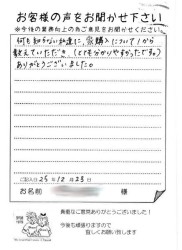 お客様の声をお聞かせ下さい
※今後の業務向上の為ご意見をお聞かせください。
何も知らない私達に、家購入について1から
教えていただき、(とても分かりやすかったですm)
ありがとうございました。
ご記入日 25年12月23日
お名前 様
貴重なご意見ありがとうございました!
今後も頑張りますので
宜しくお願い致します